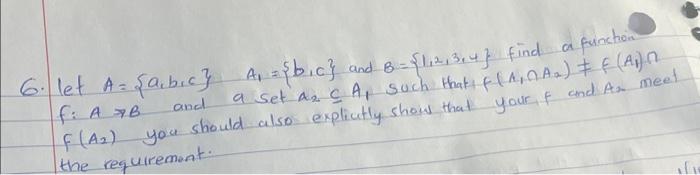 6. let A = {a,b,c} A₁ = {b,c} and B = {1,2,3,4} find a function
f: A → B and a set A₂ ⊆ A₁ such that f(A₁∩A₂) ≠ f(A₁)∩
f(A₂) you should also explicitly show that your f and A₂ meet
the requirement.